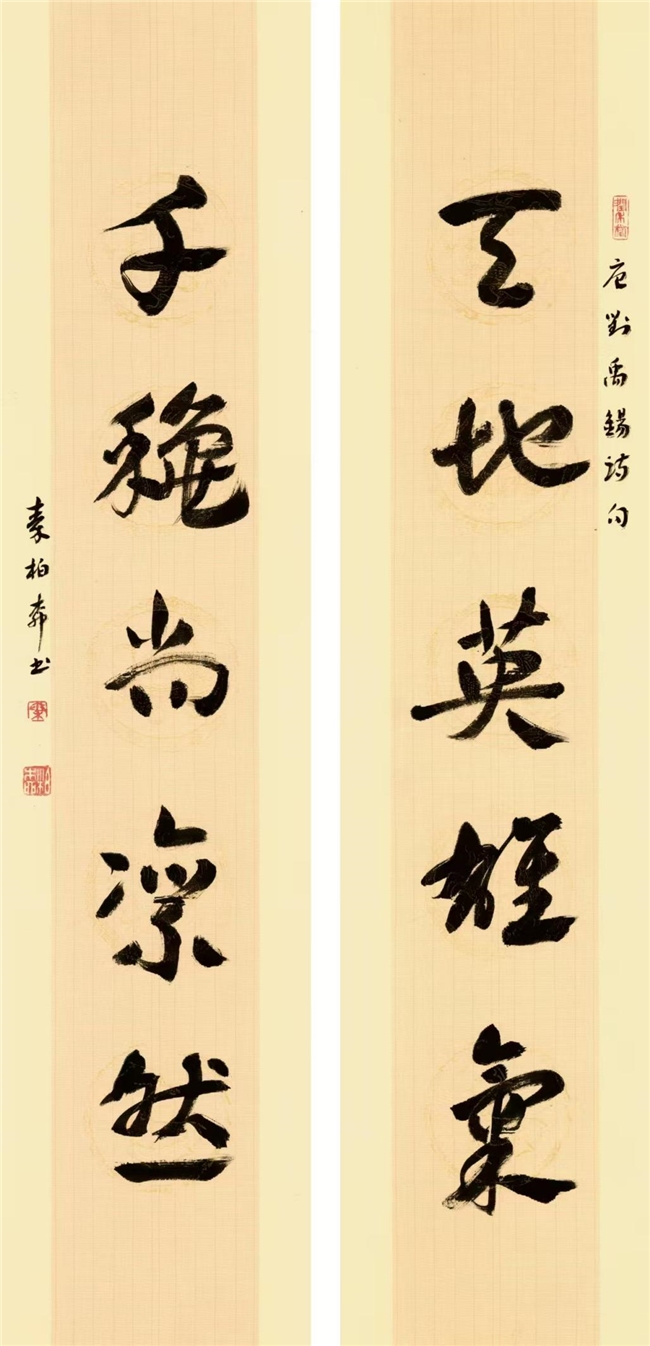 唐劉禹錫詩句
天地英雄氣
千穐尚凛然
秦柏書